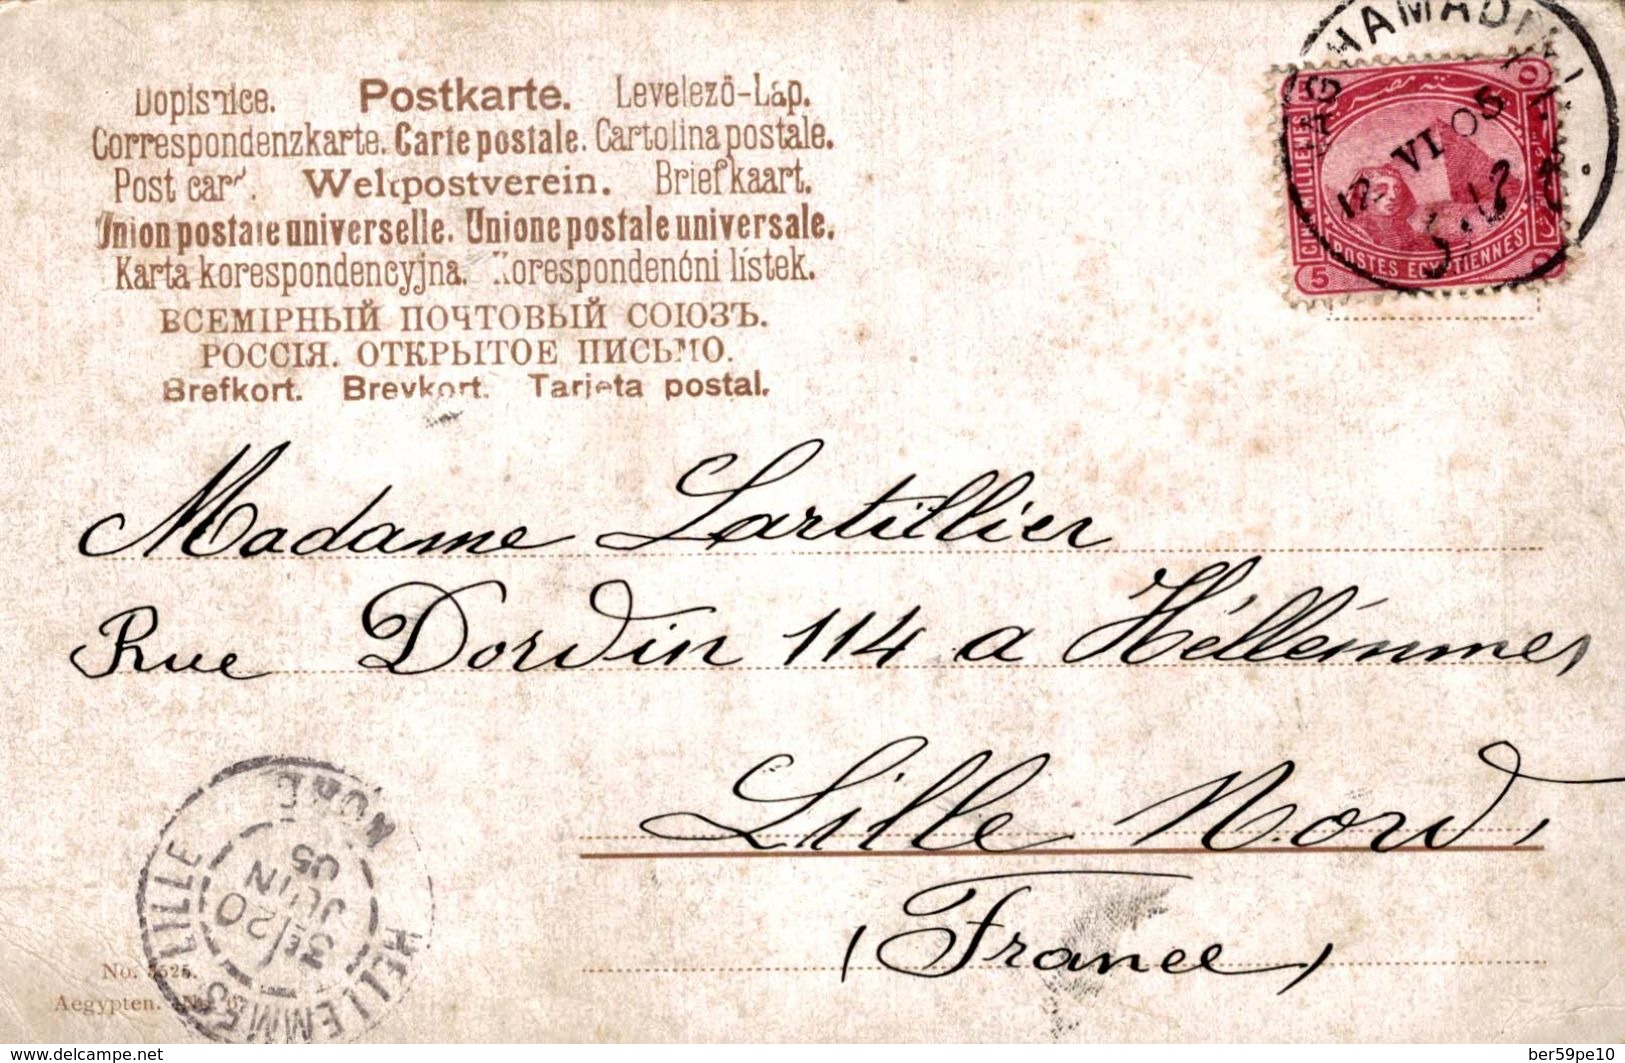 Dopisnice. Postkarte. Levelező-Lap.
Correspondenzkarte. Carte postale. Cartolina postale.
Post card. Weltpostverein. Briefkaart.
Union postale universelle. Unione postale universale.
Karta korespondencyjna. Korespondenčni lístek.
ВСЕМІРНЫЙ ПОЧТОВЫЙ СОЮЗЪ.
РОССІЯ. ОТКРЫТОЕ ПИСЬМО.
Brefkort. Brevkort. Tarjeta postal.
VI 05
CINQ MILLIEMES
POSTES EGYPTIENNES
5
Madame Lartillier
Rue Dordin 114 a Héllémmes
Lille Nord,
(France)
HELLEMMES LILLE
NORD
3E/20
JUIN
05
No.
Aegypten.
www.delcampe.net
ber59pe10